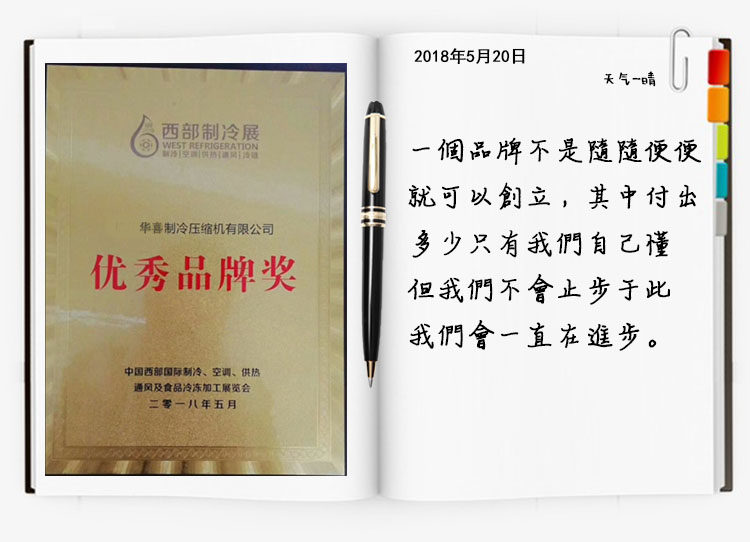 西部制冷展
WEST REFRIGERATION
制冷|空调|供热|通风|冷链
华喜制冷压缩机有限公司
优秀品牌奖
中国西部国际制冷、空调、供热
通风及食品冷冻加工展览会
二零一八年五月
2018年5月20日
天气一晴
一個品牌不是隨隨便便
就可以創立，其中付出
多少只有我們自己懂
但我們不會止步于此
我們會一直在進步。